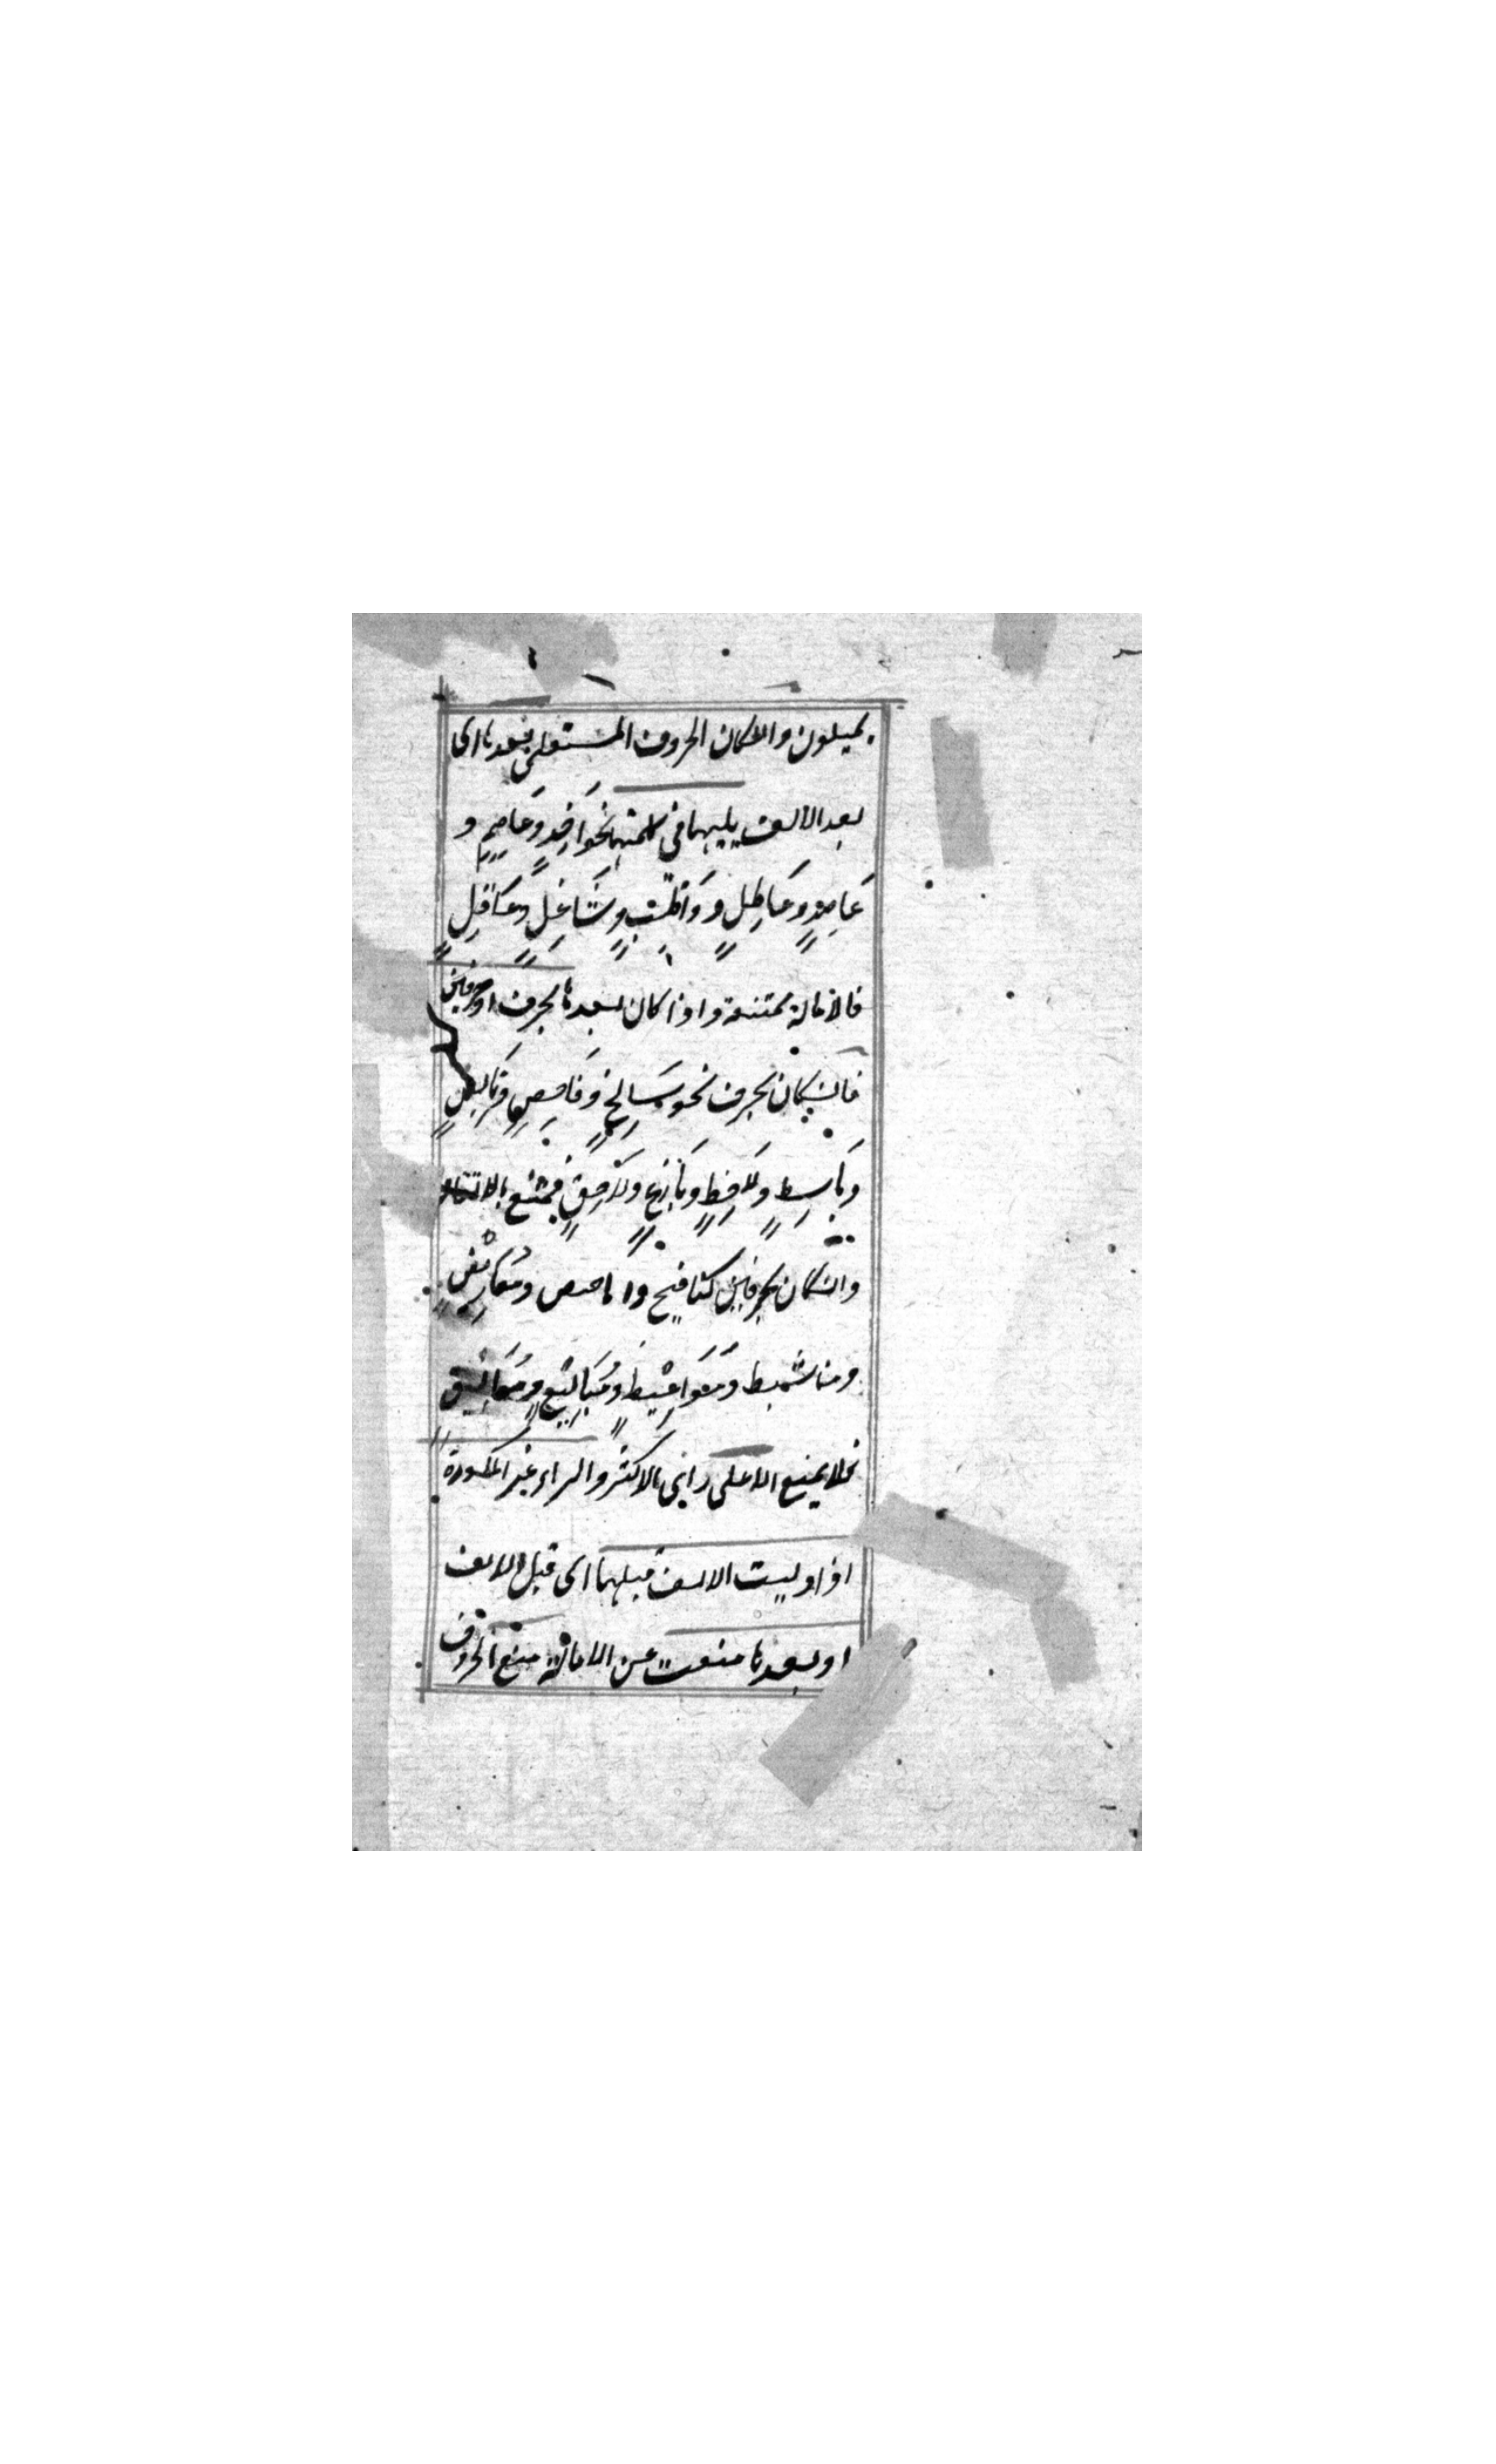 يميلون وانكان الحروف المستعلى بعدها اى
بعد الالف يليها فى كلمتها نحو اخِذٍ وَعَاصِمٍ و
عَاضِدٍ وعَاطِلٍ و وَاظِبٍ وشَاغِلٍ وعَاقِلٍ
فالامالة ممتنعة واذا كان بعدها بحرف او حرفين
فانكان بحرف نحو سَالِخٍ وفَاحِصٍ وَ
وبَاسِطٍ ولَافِظٍ ونَازِغٍ ولَاحِقٍ فيمتنع بالاتفاق
وانكان بحرفين كمنافيخ و ومَعَارِيضَ
ومناشيط ومَوَاعِيظ ومَبَالِيغ ومَعَالِيق
فلا يمنع الا على راى بالاكثر والراء غير المكسورة
اذا وليت الالف قبلها اى قبل الالف
او بعدها منعت عن الامالة منع الحروف